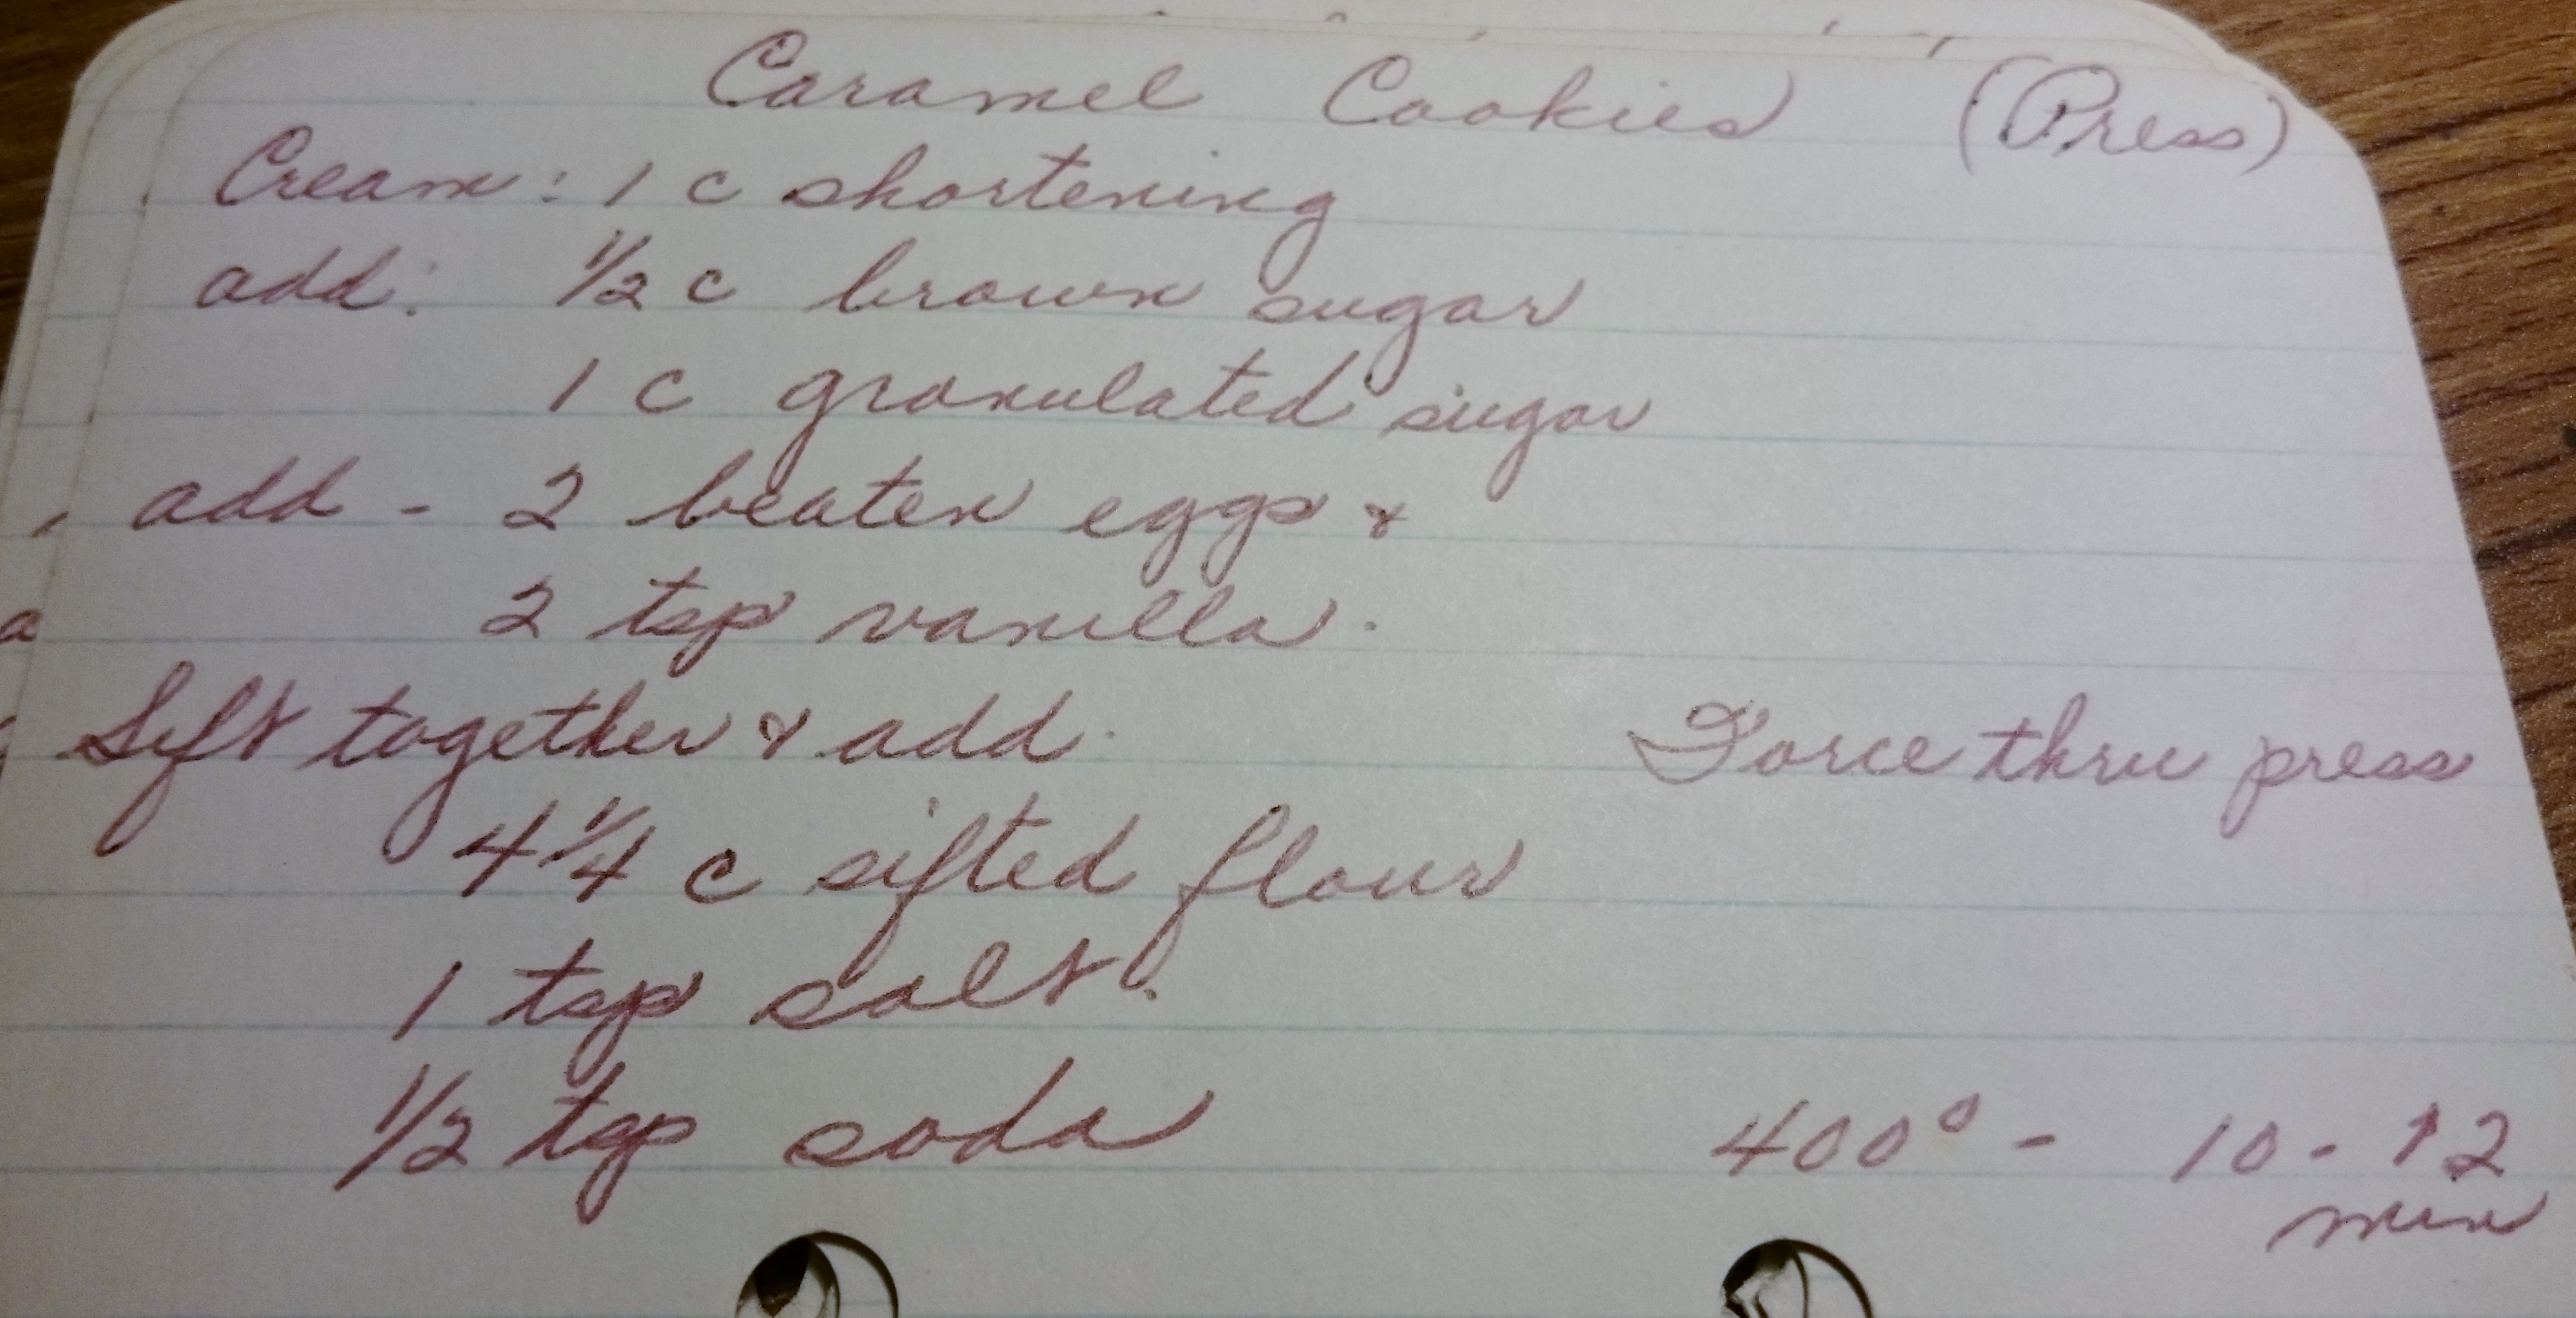 Caramel Cookies (Press)
Cream: 1 c shortening
add: 1/2 c brown sugar
1 c granulated sugar
add - 2 beaten eggs &
2 tsp vanilla.
Sift together & add.
Force thru press
4 1/4 c sifted flour
1 tsp salt.
1/2 tsp soda
400° - 10 - 12
min